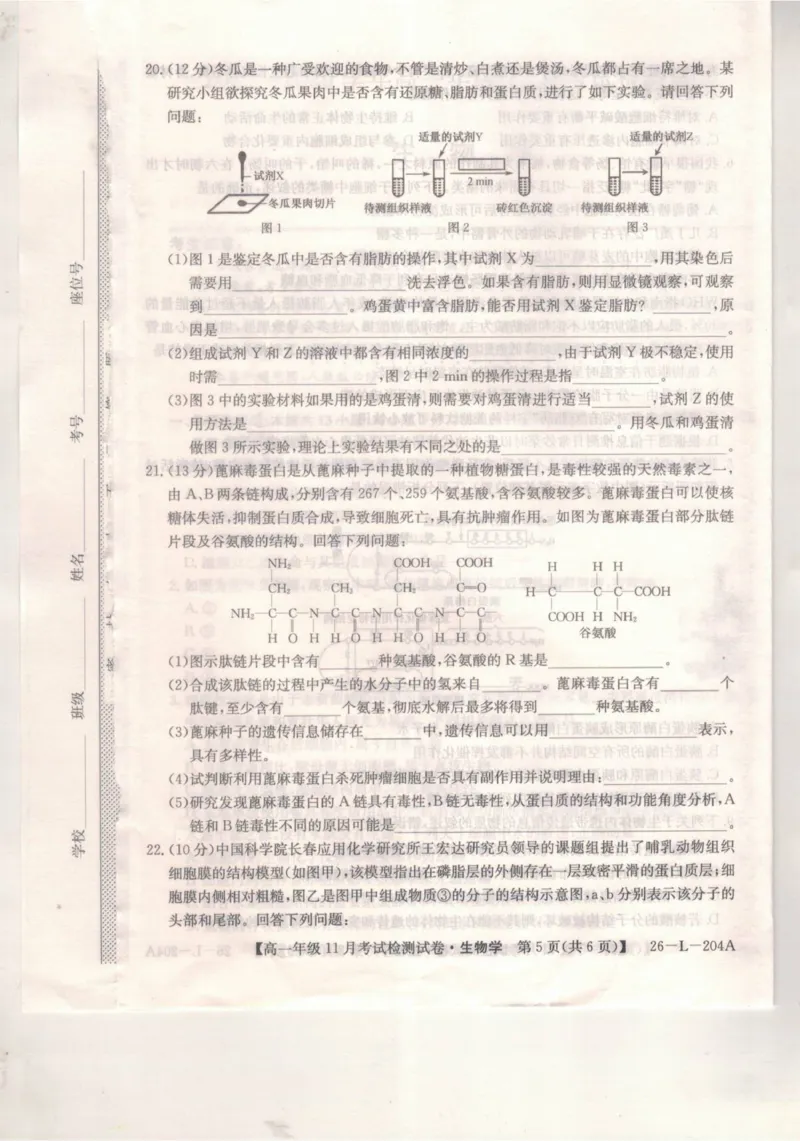 20.(12分)冬瓜是一种广受欢迎的食物,不管是清炒、白煮还是煲汤,冬瓜都占有一席之地。某
研究小组欲探究冬瓜果肉中是否含有还原糖、脂肪和蛋白质,进行了如下实验。请回答下列
问题:
适量的试剂Y
适量的试剂Z
试剂X
2 min
冬瓜果肉切片
待测组织样液
砖红色沉淀
待测组织样液
图1
图2
图3
(1)图1是鉴定冬瓜中是否含有脂肪的操作,其中试剂X为____________,用其染色后
需要用____________洗去浮色。如果含有脂肪,则用显微镜观察,可观察
到____________。鸡蛋黄中富含脂肪,能否用试剂X鉴定脂肪?________,原
因是____________。
(2)组成试剂Y和Z的溶液中都含有相同浓度的____________,由于试剂Y极不稳定,使用
时需____________,图2中2 min的操作过程是指____________。
(3)图3中的实验材料如果用的是鸡蛋清,则需要对鸡蛋清进行适当________,试剂Z的使
用方法是____________。用冬瓜和鸡蛋清
做图3所示实验,理论上实验结果有不同之处的是____________。
21.(13分)蓖麻毒蛋白是从蓖麻种子中提取的一种植物糖蛋白,是毒性较强的天然毒素之一,
由A、B两条链构成,分别含有267个、259个氨基酸,含谷氨酸较多。蓖麻毒蛋白可以使核
糖体失活,抑制蛋白质合成,导致细胞死亡,具有抗肿瘤作用。如图为蓖麻毒蛋白部分肽链
片段及谷氨酸的结构。回答下列问题:
NH₂ COOH COOH
CH₂ CH₃ CH₂ C=O
NH₂—C—C—N—C—C—N—C—C—N—C—C
H O H H O H H O H H O
H H H
H—C——C—C—COOH
COOH H NH₂
谷氨酸
(1)图示肽链片段中含有________种氨基酸,谷氨酸的R基是____________。
(2)合成该肽链的过程中产生的水分子中的氢来自________。蓖麻毒蛋白含有________个
肽键,至少含有________个氨基,彻底水解后最多将得到________种氨基酸。
(3)蓖麻种子的遗传信息储存在________中,遗传信息可以用____________表示,
具有多样性。
(4)试判断利用蓖麻毒蛋白杀死肿瘤细胞是否具有副作用并说明理由:____________。
(5)研究发现蓖麻毒蛋白的A链具有毒性,B链无毒性,从蛋白质的结构和功能角度分析,A
链和B链毒性不同的原因可能是____________。
22.(10分)中国科学院长春应用化学研究所王宏达研究员领导的课题组提出了哺乳动物组织
细胞膜的结构模型(如图甲),该模型指出在磷脂层的外侧存在一层致密平滑的蛋白质层;细
胞膜内侧相对粗糙,图乙是图甲中组成物质③的分子的结构示意图,a、b分别表示该分子的
头部和尾部。回答下列问题:
【高一年级11月考试检测试卷·生物学 第5页(共6页)】 26-L-204A
座位号
考号
姓名
班级
学校